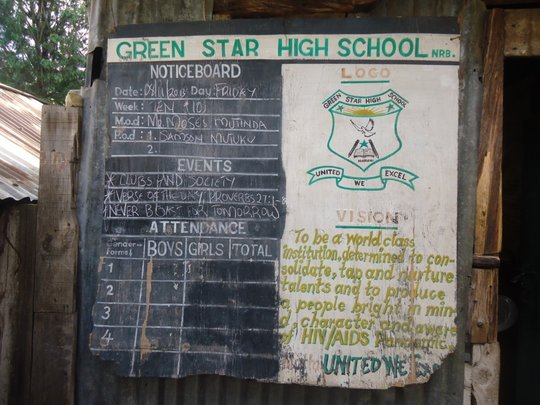 GREEN STAR HIGH SCHOOL NRB.
NOTICEBOARD
Day: FRIDAY
Week: TEN (10)
M.o.d: Mr. MOSES MUTINDA
P.o.d: 1. SAMSON MUTUKU
2.
EVENTS
* CLUBS AND SOCIETY
* VERSE OF THE DAY PROVERBS 27:1-8
NEVER BOAST FOR TOMORROW
ATTENDANCE
Gender BOYS GIRLS TOTAL
Forms
1
2
3
4
LOGO
GREEN STAR HIGH SCHOOL
NAIROBI
UNITED WE EXCEL
VISION
To be a world class
institution, determined to con-
solidate, tap and nurture
talents and to produce
a people bright in min
d, character and aware
of HIV/AIDS Pandemic
UNITED WE